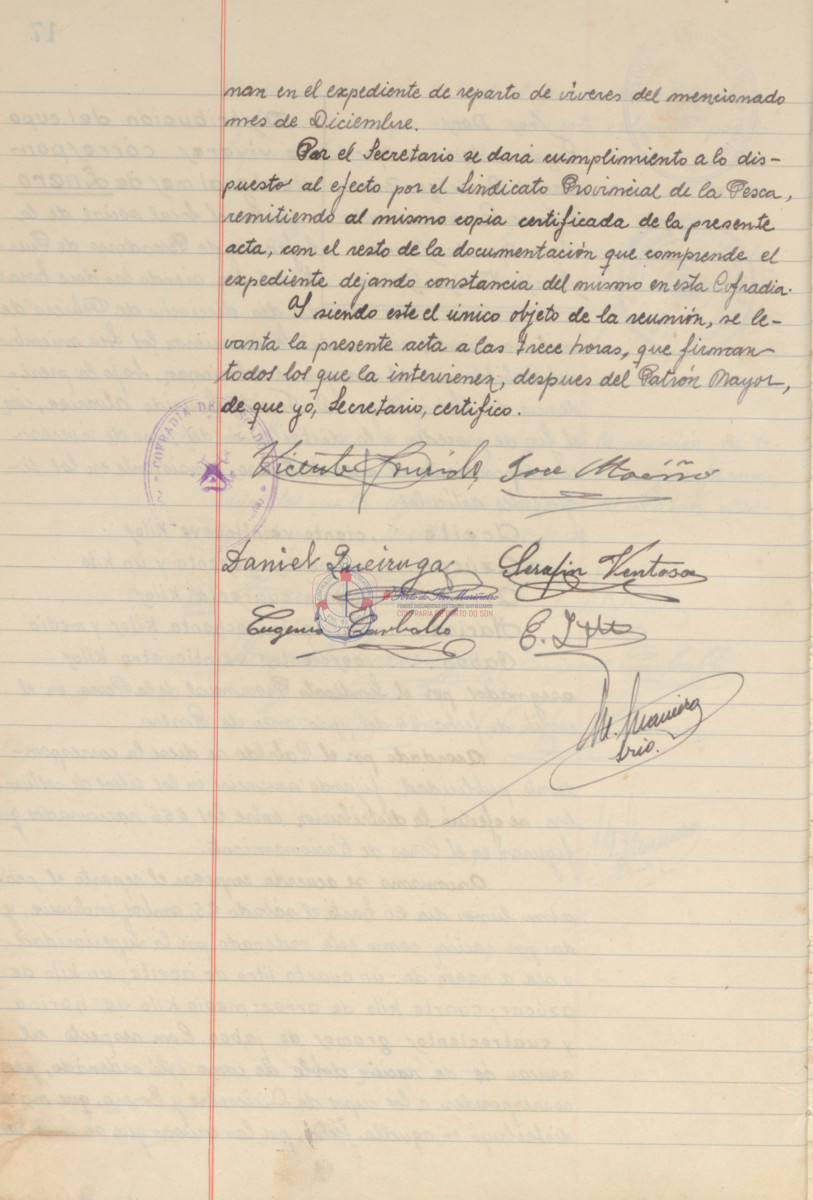 nan en el expediente de reparto de víveres del mencionado
mes de Diciembre.
Por el Secretario se dará cumplimiento a lo dis-
puesto al efecto por el Sindicato Provincial de la Pesca,
remitiendo al mismo copia certificada de la presente
acta, con el resto de la documentación que comprende el
expediente dejando constancia del mismo en esta Cofradia.
Y siendo este el único objeto de la reunión, se le-
vanta la presente acta a las trece horas, que firman
todos los que la intervienen, despues del Patrón Mayor,
de que yo, Secretario, certifico.
COFRADIA DE
Vicente Jose
Daniel Queiruga Serafin Ventosa
Porto do Son Marinero
CONFRARÍA DE PORTO DO SON
Eugenio Carballo E.
M.
Srio.